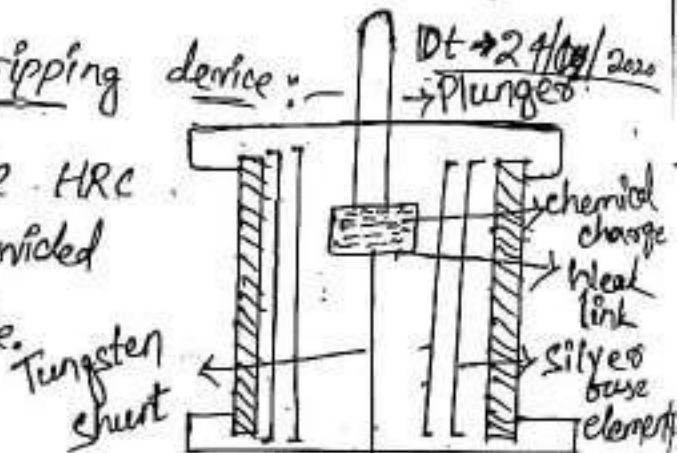 ripping device :-
Dt → 24/09/2020
→ Plunger
HRC
vided
e.
chemical
charge
Weak
link
Tungsten
shunt
Silver
fuse
element